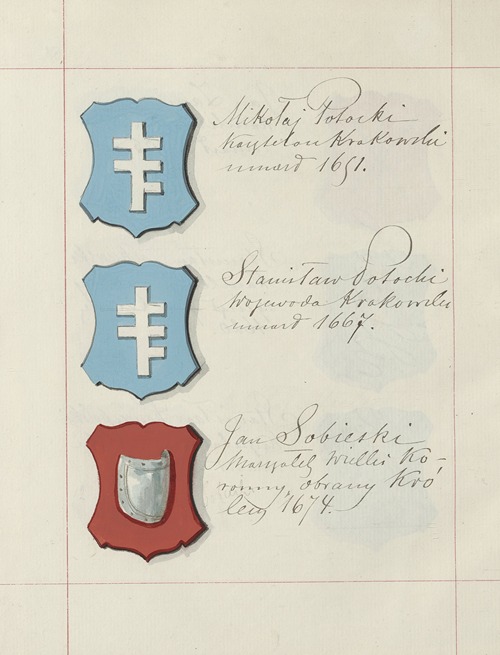 Mikołaj Potocki
Kasztelan Krakowski
umarł 1651.
Stanisław Potocki
Wojewoda Krakowski
umarł 1667.
Jan Sobieski
Marszałek Wielki Ko-
ronny, obrany Kró
lem 1674.